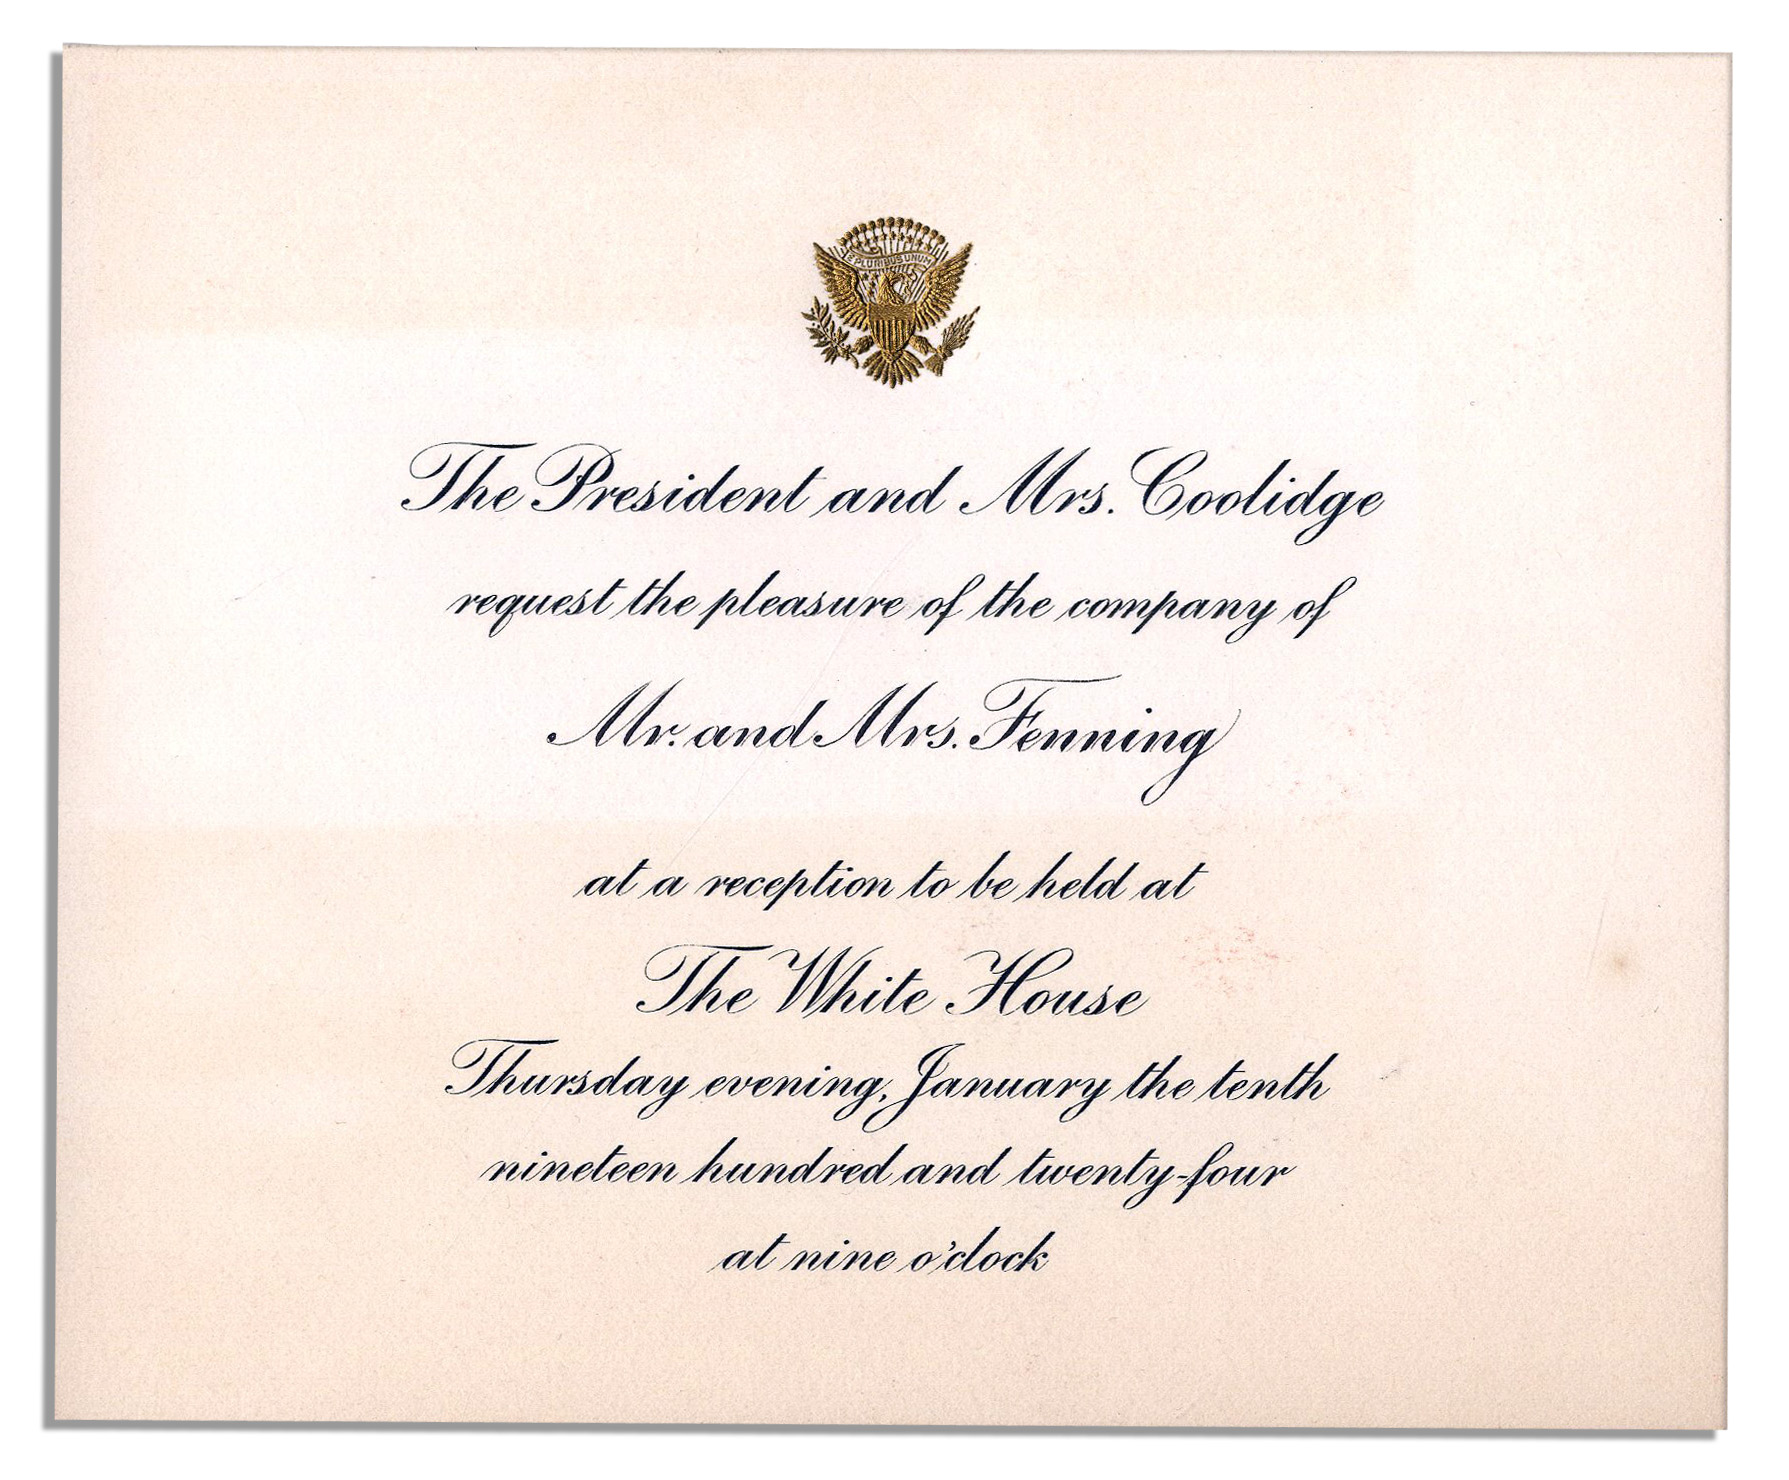 E PLURIBUS UNUM
The President and Mrs. Coolidge
request the pleasure of the company of
Mr. and Mrs. Fenning
at a reception to be held at
The White House
Thursday evening, January the tenth
nineteen hundred and twenty-four
at nine o'clock